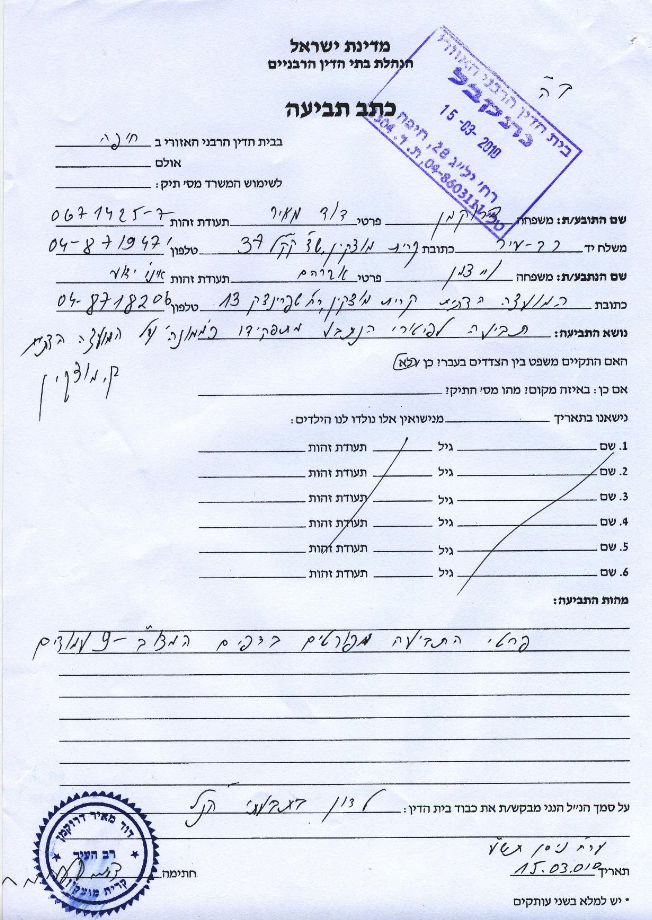 ב"ה
מדינת ישראל
הנהלת בתי הדין הרבניים
כתב תביעה
בית הדין הרבני האזורי
נתקבל
15-03-2010
רח' יל"ג 28, חיפה
טל. 04-8603111 ת.ד. 304
בבית הדין הרבני האזורי ב חיפה
אולם
לשימוש המשרד מס' תיק:
שם התובע/ת: משפחה דרוקמן פרטי דוד מאיר תעודת זהות 0671425-7
משלח יד רב-עיר כתובת קרית מוצקין, שד' קק"ל 37 טלפון 04-8719471
שם הנתבע/ת: משפחה פרטי אברהם תעודת זהות אינו ידוע
כתובת המועצה הדתית קרית מוצקין, רח' שפרינצק 13 טלפון 04-8718206
נושא התביעה: תביעה לפיטורי הנתבע מתפקידו כממונה על המועצה הדתית
ק. מוצקין
האם התקיים משפט בין הצדדים בעבר? כן / לא
אם כן: באיזה מקום? מהו מס' התיק?
נישאנו בתאריך מנישואין אלו נולדו לנו הילדים:
1. שם גיל תעודת זהות
2. שם גיל תעודת זהות
3. שם גיל תעודת זהות
4. שם גיל תעודת זהות
5. שם גיל תעודת זהות
6. שם גיל תעודת זהות
מהות התביעה:
פרטי התביעה מפורטים בדפים המצ"ב - 9 עמודים
על סמך הנ"ל הנני מבקש/ת את כבוד בית הדין: לדון בתביעתי הנ"ל
ער"ח ניסן תש"ע
תאריך 15.03.010
חתימה
דוד מאיר דרוקמן
רב העיר
קרית מוצקין
• יש למלא בשני עותקים